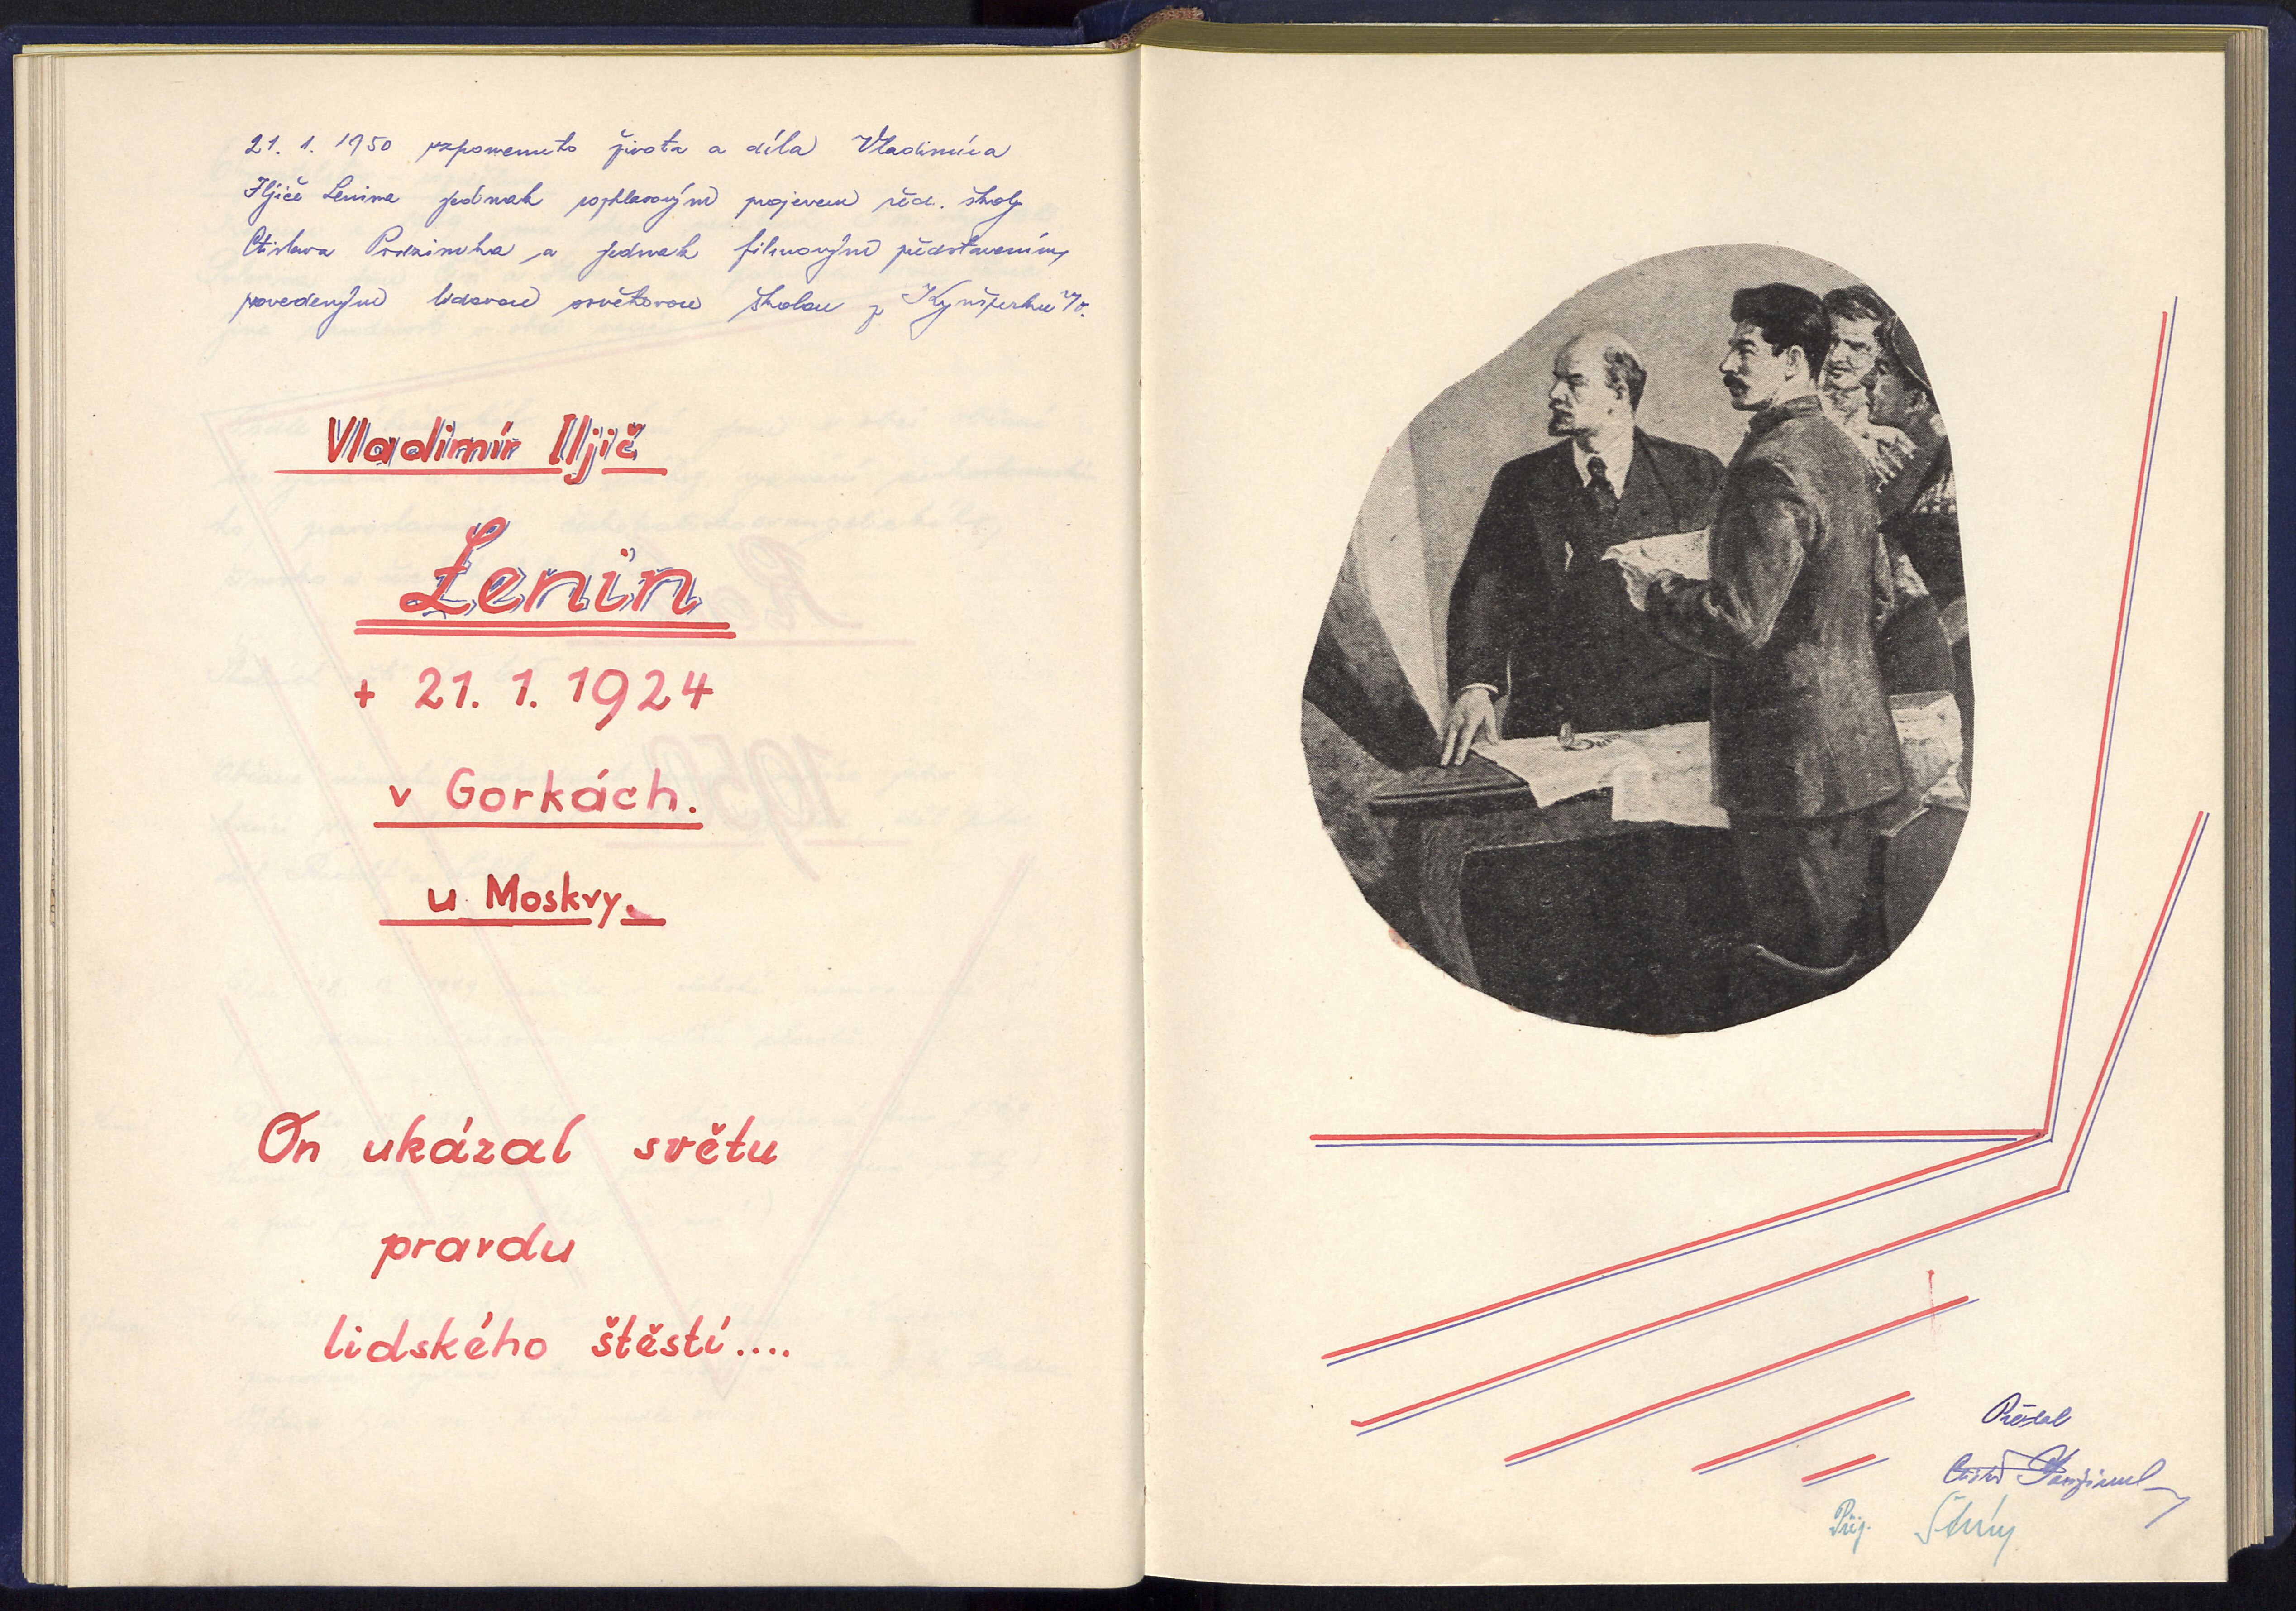 21. 1. 1950 vzpomenuto života a díla Vladimíra
Iljiče Lenina jednak rozhlasovým projevem řed. školy
Ctislava Podzimka a jednak filmovým představením,
provedeným lidovou osvětovou školou z Kynšperku n/O.
Vladimír Iljič
Lenin
+ 21. 1. 1924
v Gorkách.
u Moskvy.
On ukázal světu
pravdu
lidského štěstí....
Předal
Podzimek
Přij.